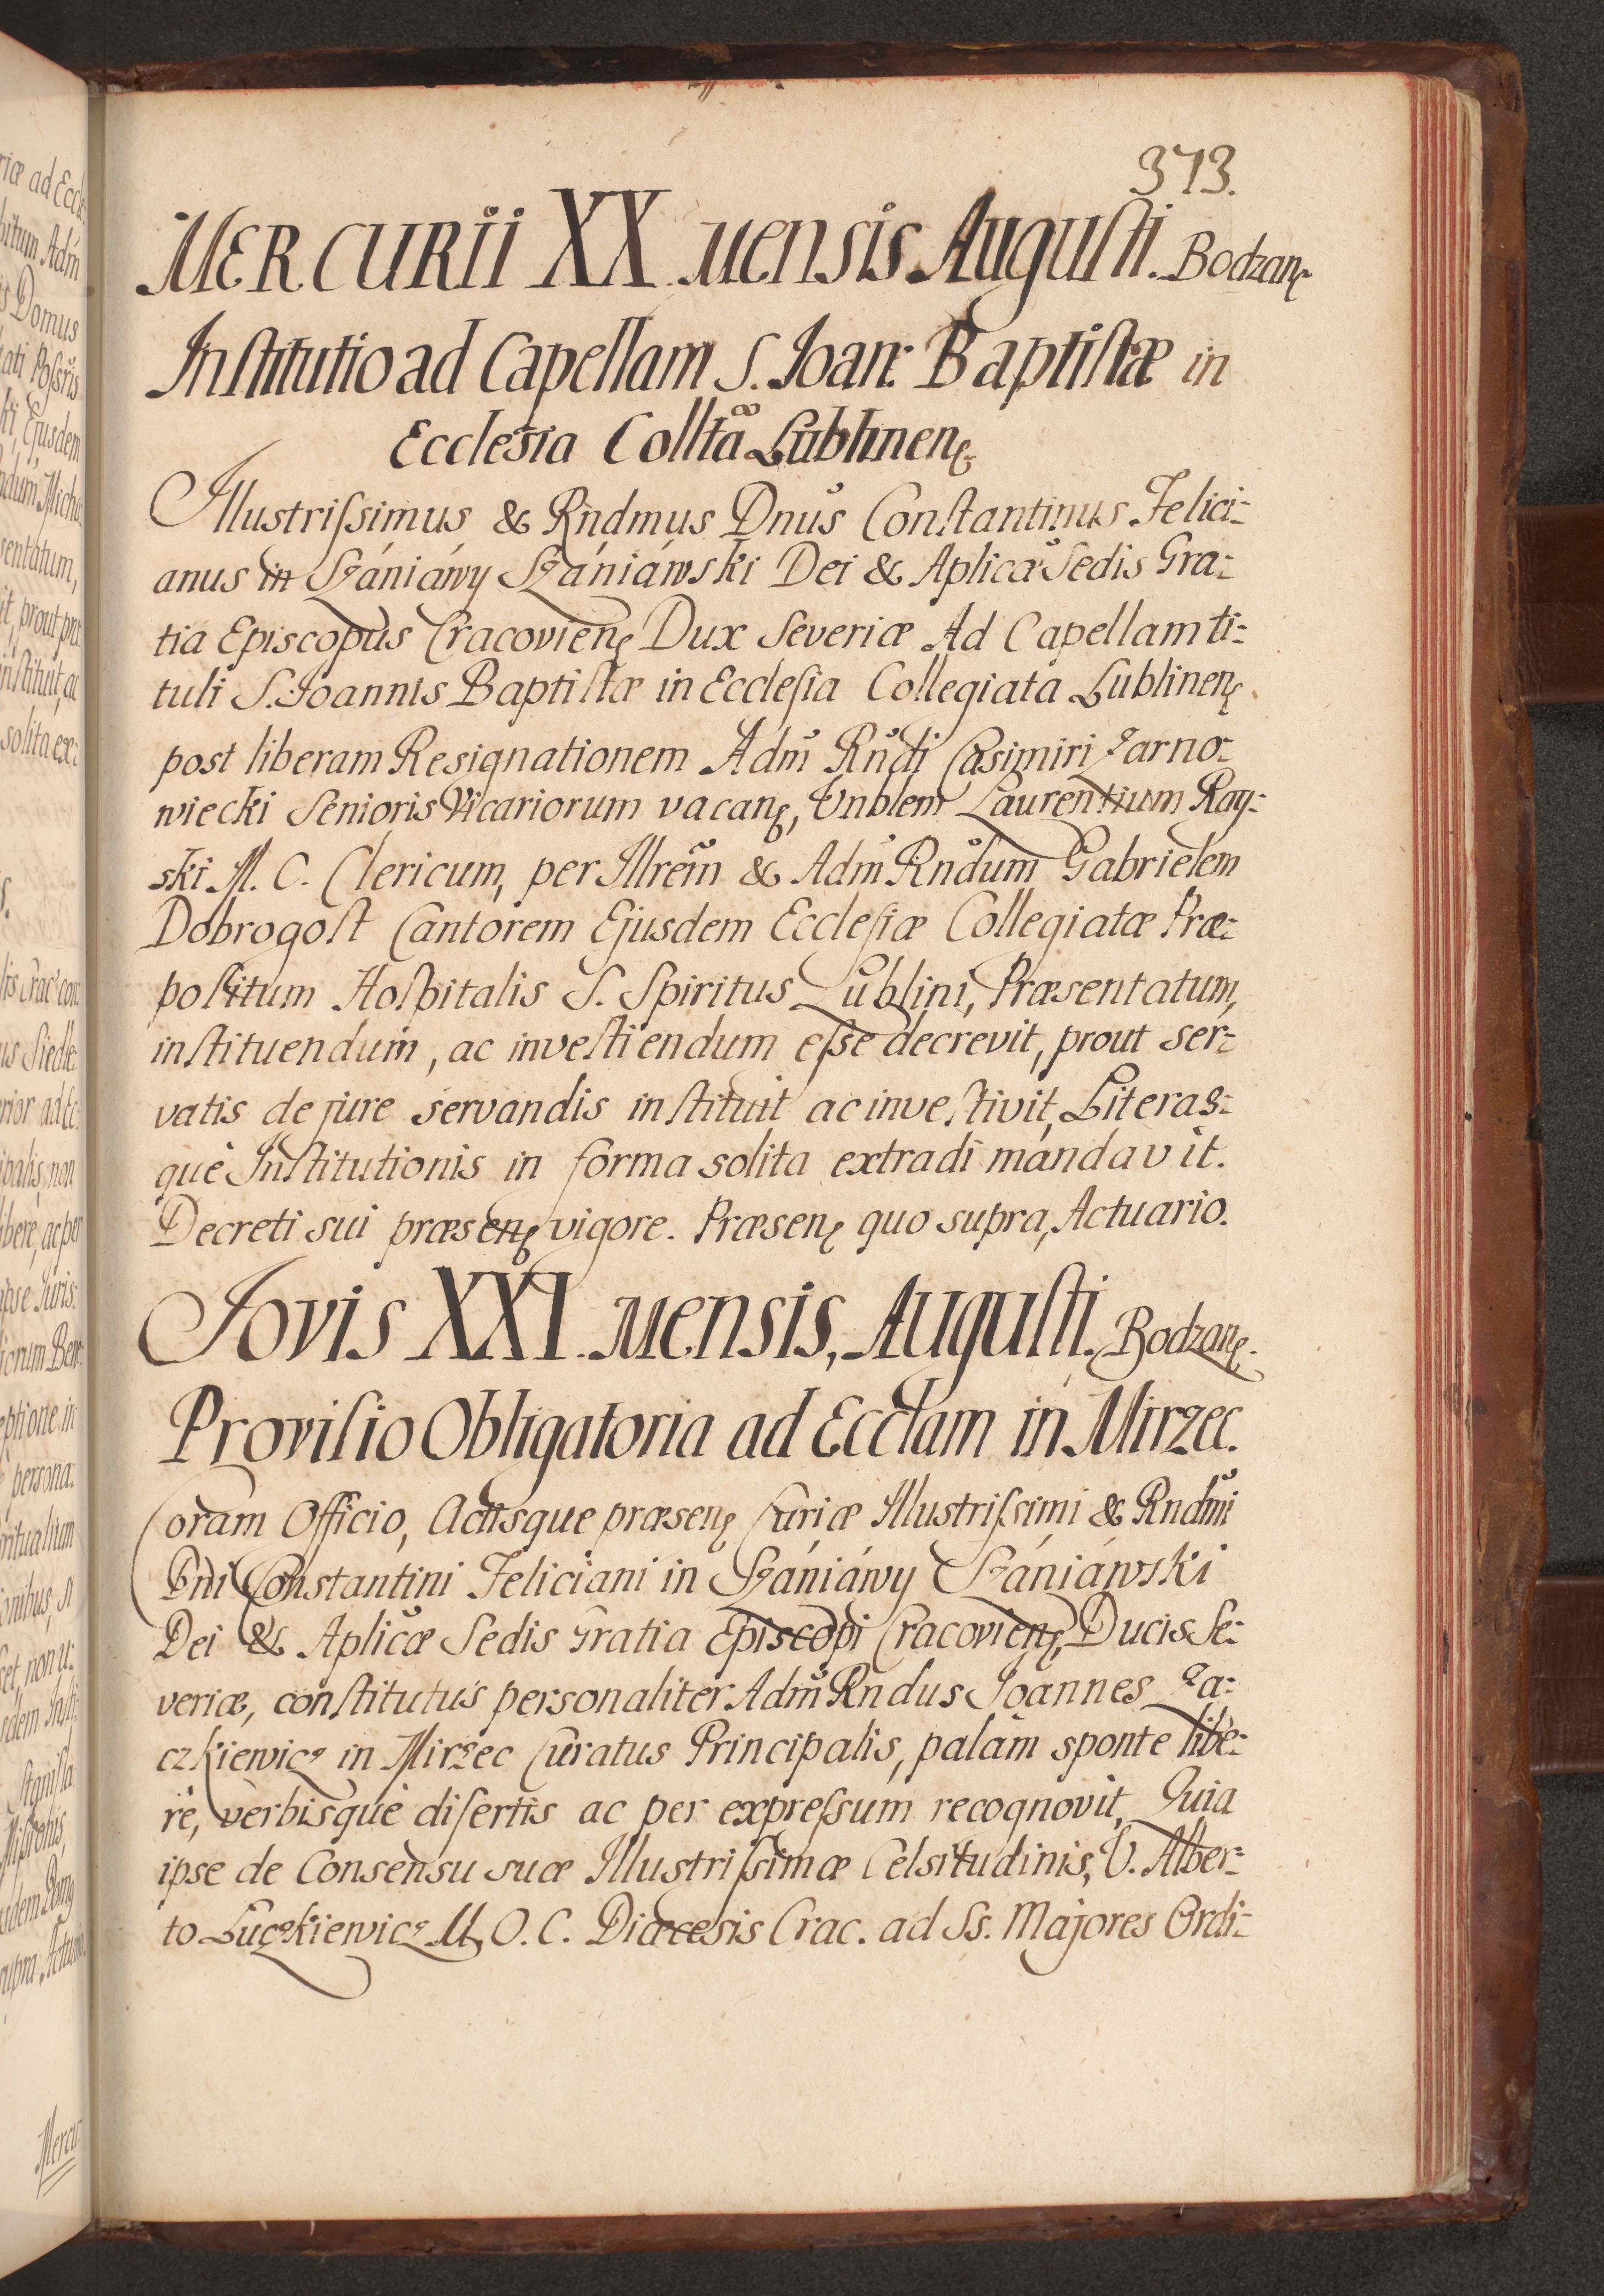 373.
MERCURii XX mensis Augusti. Bodzanę
Institutio ad Capellam S. Joan: Baptistæ in
Ecclesia Colltã Lublinenę
Illustrissimus & Rndmus Dnus Constantinus Felici-
anus in Szániáwy Szániáwski Dei & Aplicæ Sedis Gra-
tia Episcopus Cracovienę Dux Severiæ Ad Capellam ti-
tuli S. Joannis Baptistæ in Ecclesia Collegiata Lublinenę
post liberam Resignationem Adm Rndi Casimiri Zarno-
wiecki Senioris Vicariorum vacanę, Vnblem Laurentium Ray-
ski M. C. Clericum, per Illrem & Adm Rndum Gabrielem
Dobrogost Cantorem Ejusdem Ecclesiæ Collegiatæ Præ-
positum Hospitalis S. Spiritus Lublini, Præsentatum,
instituendum, ac investiendum esse decrevit, prout ser-
vatis de jure servandis instituit ac investivit, Literas-
què Institutionis in forma solita extradi mandavit.
Decreti sui præsenę vigore. Præsenę quo supra, Actuario.
Jovis XXI. mensis, Augusti. Bodzanę.
Provisio Obligatoria ad Ecclam in Mirzec.
Coram Officio, Actisque præsenę Curiæ Illustrissimi & Rndmi
Dni Constantini Feliciani in Szániáwy Szániáwski
Dei & Aplicæ Sedis Gratia Episcopi Cracovienę, Ducis Se-
veriæ, constitutus personaliter Adm Rndus Joannes Za-
czkiewicz in Mirzec Curatus Principalis, palam sponte libe-
rè, verbisque disertis ac per expressum recognovit, Quia
ipse de Consensu suæ Illustrissimæ Celsitudinis, V. Alber-
to Luczkiewicz M. O. C. Diæcesis Crac. ad Ss. Majores Ordi-